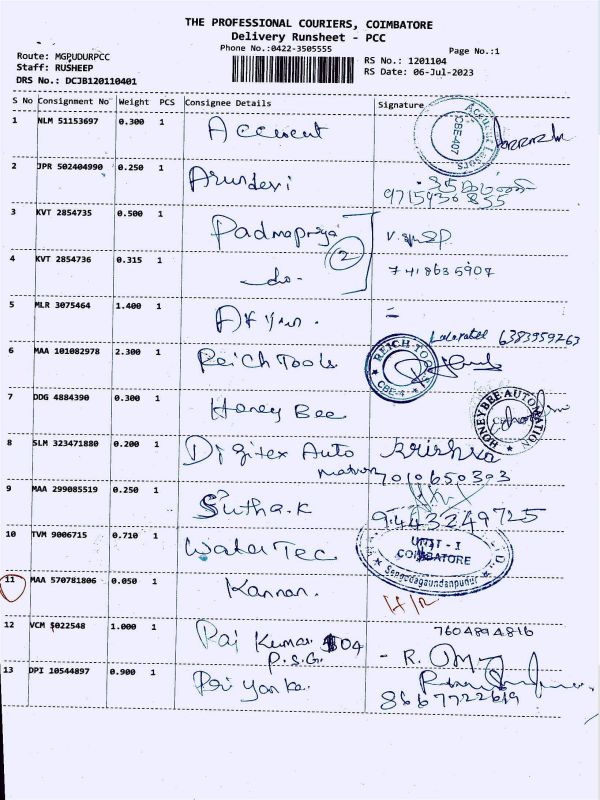 THE PROFESSIONAL COURIERS, COIMBATORE
Delivery Runsheet - PCC
Phone No.:0422-3505555
Page No.:1
Route: MGPUDURPCC
Staff: RUSHEEP
DRS No.: DCJB120110401
RS No.: 1201104
RS Date: 06-Jul-2023
S No Consignment No Weight PCS Consignee Details Signature
1 NLM 51153697 0.300 1 Accurent
CBE-407
2 JPR 502404990 0.250 1 Arundevi
9715930855
3 KVT 2854735 0.500 1 Padmapriya
2
4 KVT 2854736 0.315 1 -do-
7418635907
5 MLR 3075464 1.400 1
6383959263
6 MAA 101082978 2.300 1 Reich Tools
REICH-TOOLS
CBE-4
7 DDG 4884390 0.300 1 Honey Bee
HONEYBEE AUTOMATION
8 SLM 323471880 0.200 1 Digitex Auto Krishna
mation 7010650303
9 MAA 299085519 0.250 1 Sutha.K
9443249725
10 TVM 9006715 0.710 1 Water Tec
UNIT - I
COIMBATORE
11 MAA 570781806 0.050 1 Kannan.
12 VCM 5022548 1.000 1 Raj Kumar 504
P.S.G.
7604894816
13 DPI 10544897 0.900 1 Priyanka.
8667722619